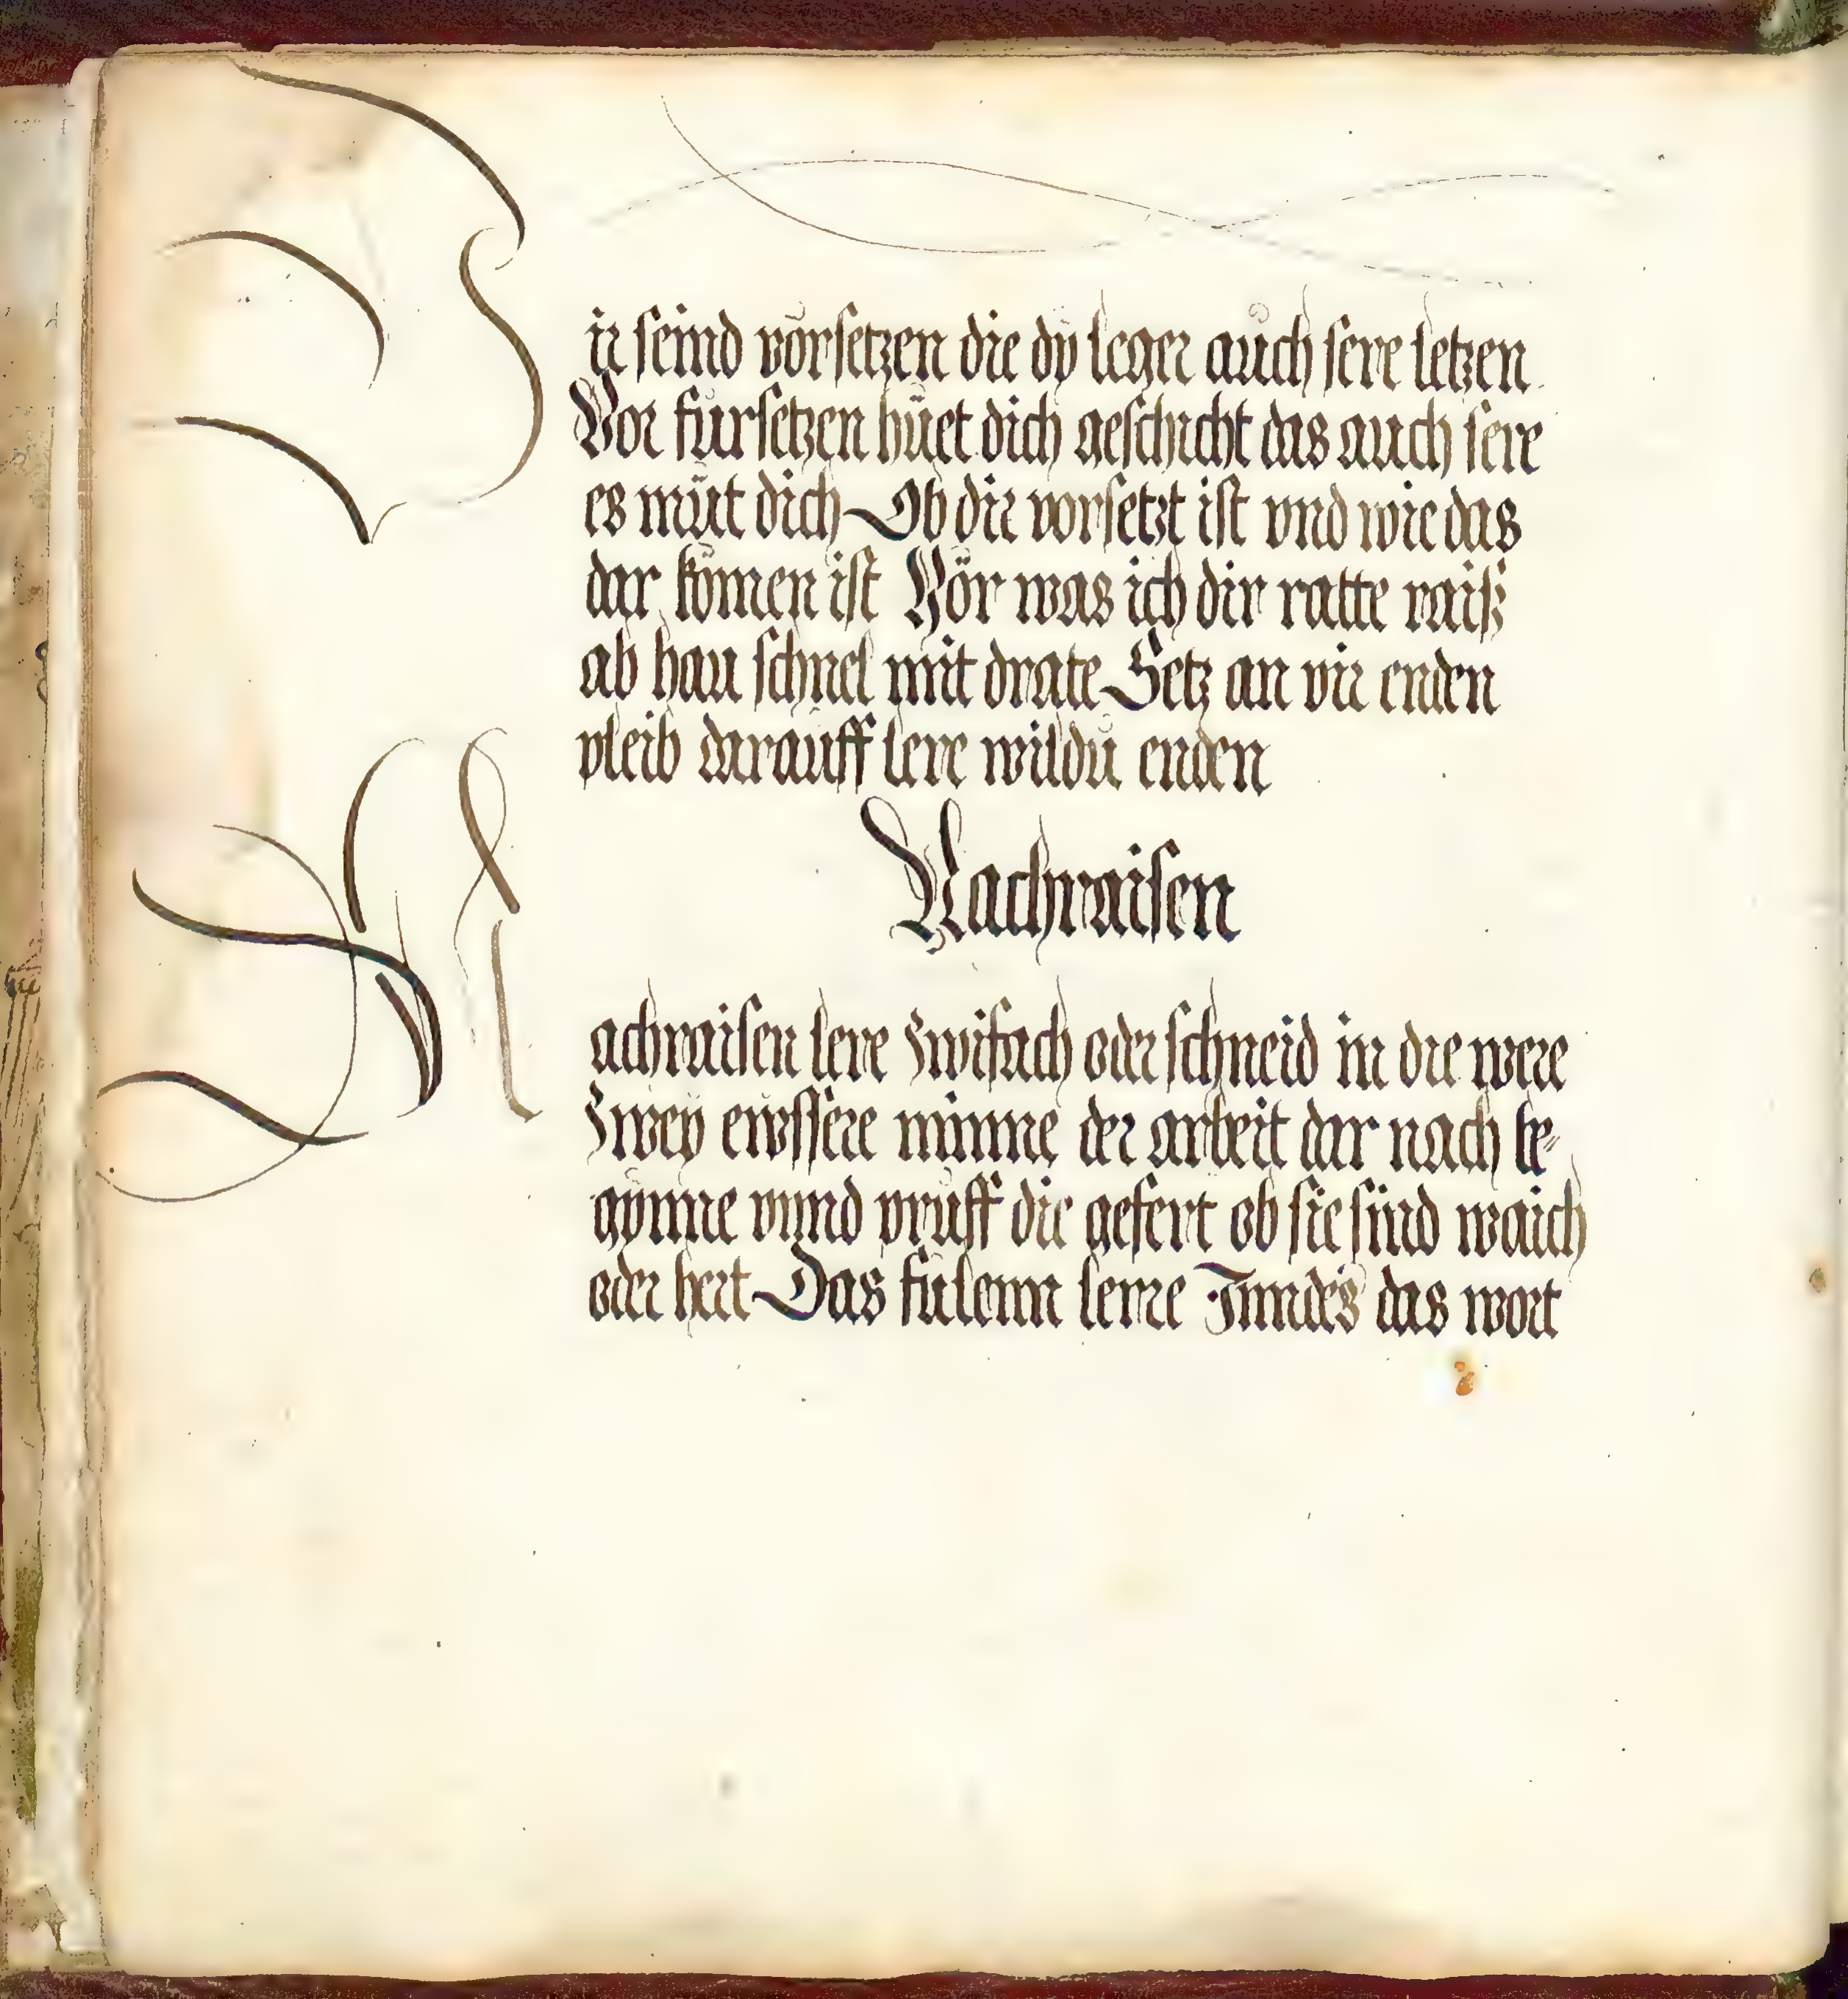 Vir seind vorsetzen die dy leger auch sere letzen
Vor fürsetzen hüet dich geschicht das auch sere
es müt dich Ob dir vorsetzt ist vnd wie das
dar komen ist Hör was ich dir ratte raiß
ab hau schnel mit drate Setz an vir enden
pleib darauff lere wildu enden
Nachraisen
Nachraisen lere zwifach oder schneid in die were
Zwey ewssere minne der arbeit dar nach be-
gynne vnnd pruff die gefert ob sie sind waich
oder hert Das fulenn lerre Inndes das wort